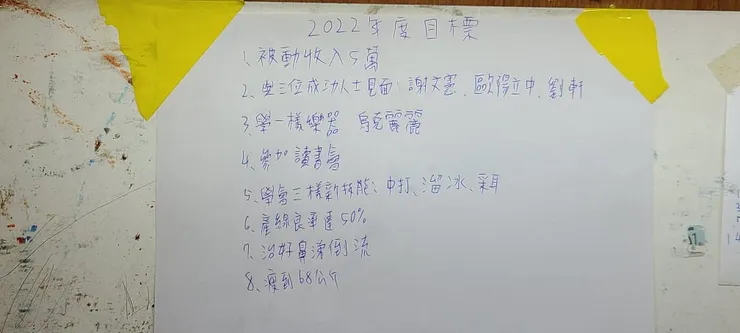 2022年度目標
1、被動收入5萬
2、與三位成功人士見面：謝文憲、歐陽立中、劉軒
3、學一樣樂器 烏克麗麗
4、參加讀書會
5、學會三樣新技能：中打、溜冰、采耳
6、產線良率達50%
7、治好鼻涕倒流
8、瘦到68公斤